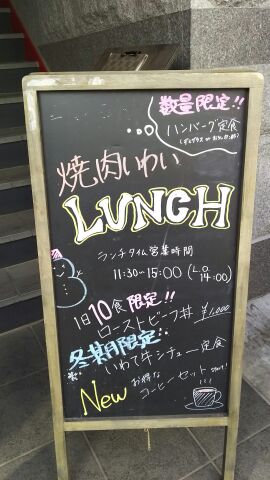 数量限定!!
ハンバーグ定食
焼肉いわい
LUNCH
ランチタイム営業時間
11:30-15:00 (L.O 14:00)
1日10食限定!!
ローストビーフ丼 ¥1,000
冬期限定
いわて牛シチュー定食
New お得な
コーヒーセット start!